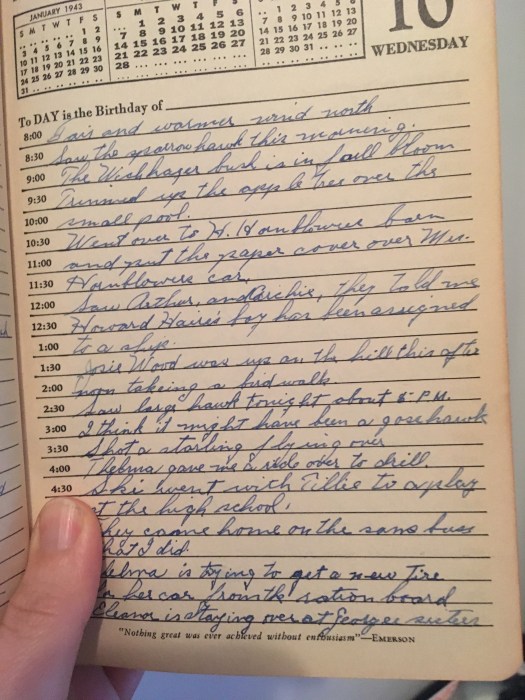 JANUARY 1943
S M T W T F S
1 2
3 4 5 6 7 8 9
10 11 12 13 14 15 16
17 18 19 20 21 22 23
24 25 26 27 28 29 30
31
S M T W T F S
1 2 3 4 5 6
7 8 9 10 11 12 13
14 15 16 17 18 19 20
21 22 23 24 25 26 27
28
1 2 3 4 5 6
7 8 9 10 11 12 13
14 15 16 17 18 19 20
21 22 23 24 25 26 27
28 29 30 31
10
WEDNESDAY
To DAY is the Birthday of
8:00 Fair and warmer wind north
8:30 Saw the sparrow hawk this morning.
9:00 The Wichhazer bush is in full bloom
9:30 Trimmed up the apple tree over the
10:00 small pool.
10:30 Went over to H. Hornblowers barn
11:00 and put the paper cover over Mrs.
11:30 Hornblowers car.
12:00 Saw Arthur, and Archie, they told me
12:30 Howard Haire's boy has been assigned
1:00 to a ship.
1:30 Josie Wood was up on the hill this after
2:00 noon takeing a bird walk.
2:30 Saw large hawk tonight about 5 P.M.
3:00 I think it might have been a goshawk
3:30 Shot a starling flying over
4:00 Thelma gave me a ride over to drill.
4:30 Ski went with Tillie to a play
at the high school.
They came home on the same buss
that I did.
Thelma is trying to get a new tire
her car from the ration board
Eleanor is staying over at Georges sisters
"Nothing great was ever achieved without enthusiasm"—EMERSON